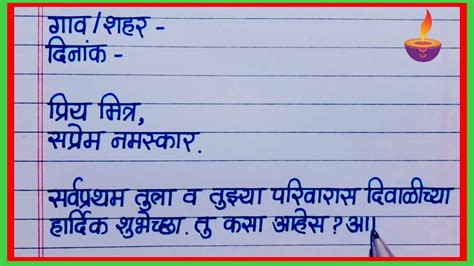 गाव/शहर -
दिनांक -
प्रिय मित्र,
सप्रेम नमस्कार.
सर्वप्रथम तुला व तुझ्या परिवारास दिवाळीच्या
हार्दिक शुभेच्छा. तु कसा आहेस? आ